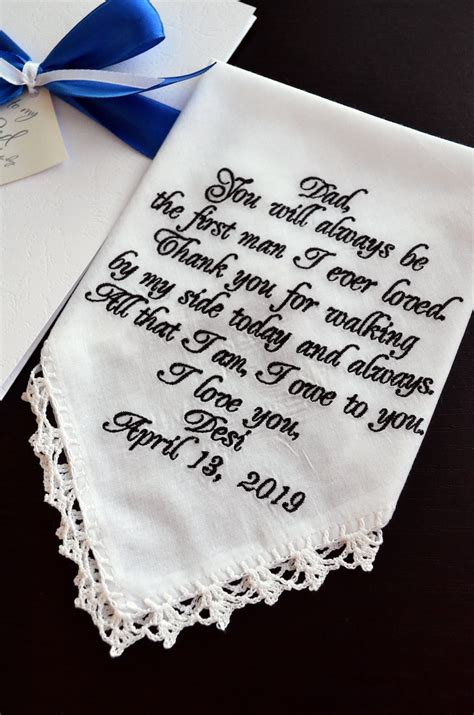 to my
Dad,
You will always be
the first man I ever loved.
Thank you for walking
by my side today and always.
All that I am, I owe to you.
I love you,
Desi
April 13, 2019